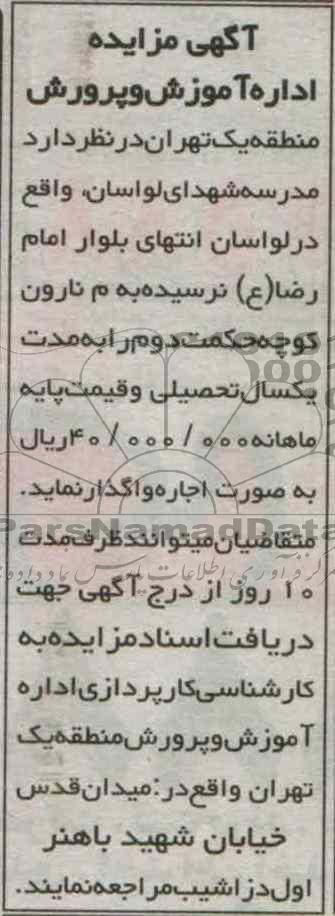 آگهی مزایده
اداره آموزش و پرورش
منطقه یک تهران در نظر دارد
مدرسه شهدای لواسان، واقع
در لواسان انتهای بلوار امام
رضا(ع) نرسیده به م نارون
کوچه حکمت دوم را به مدت
یکسال تحصیلی و قیمت پایه
ماهانه ۴۰/۰۰۰/۰۰۰ ریال
به صورت اجاره واگذار نماید.
ParsNamadData
متقاضیان میتوانند ظرف مدت
۱۰ روز از درج آگهی جهت
دریافت اسناد مزایده به
کارشناسی کارپردازی اداره
آموزش و پرورش منطقه یک
تهران واقع در: میدان قدس
خیابان شهید باهنر
اول دزاشیب مراجعه نمایند.